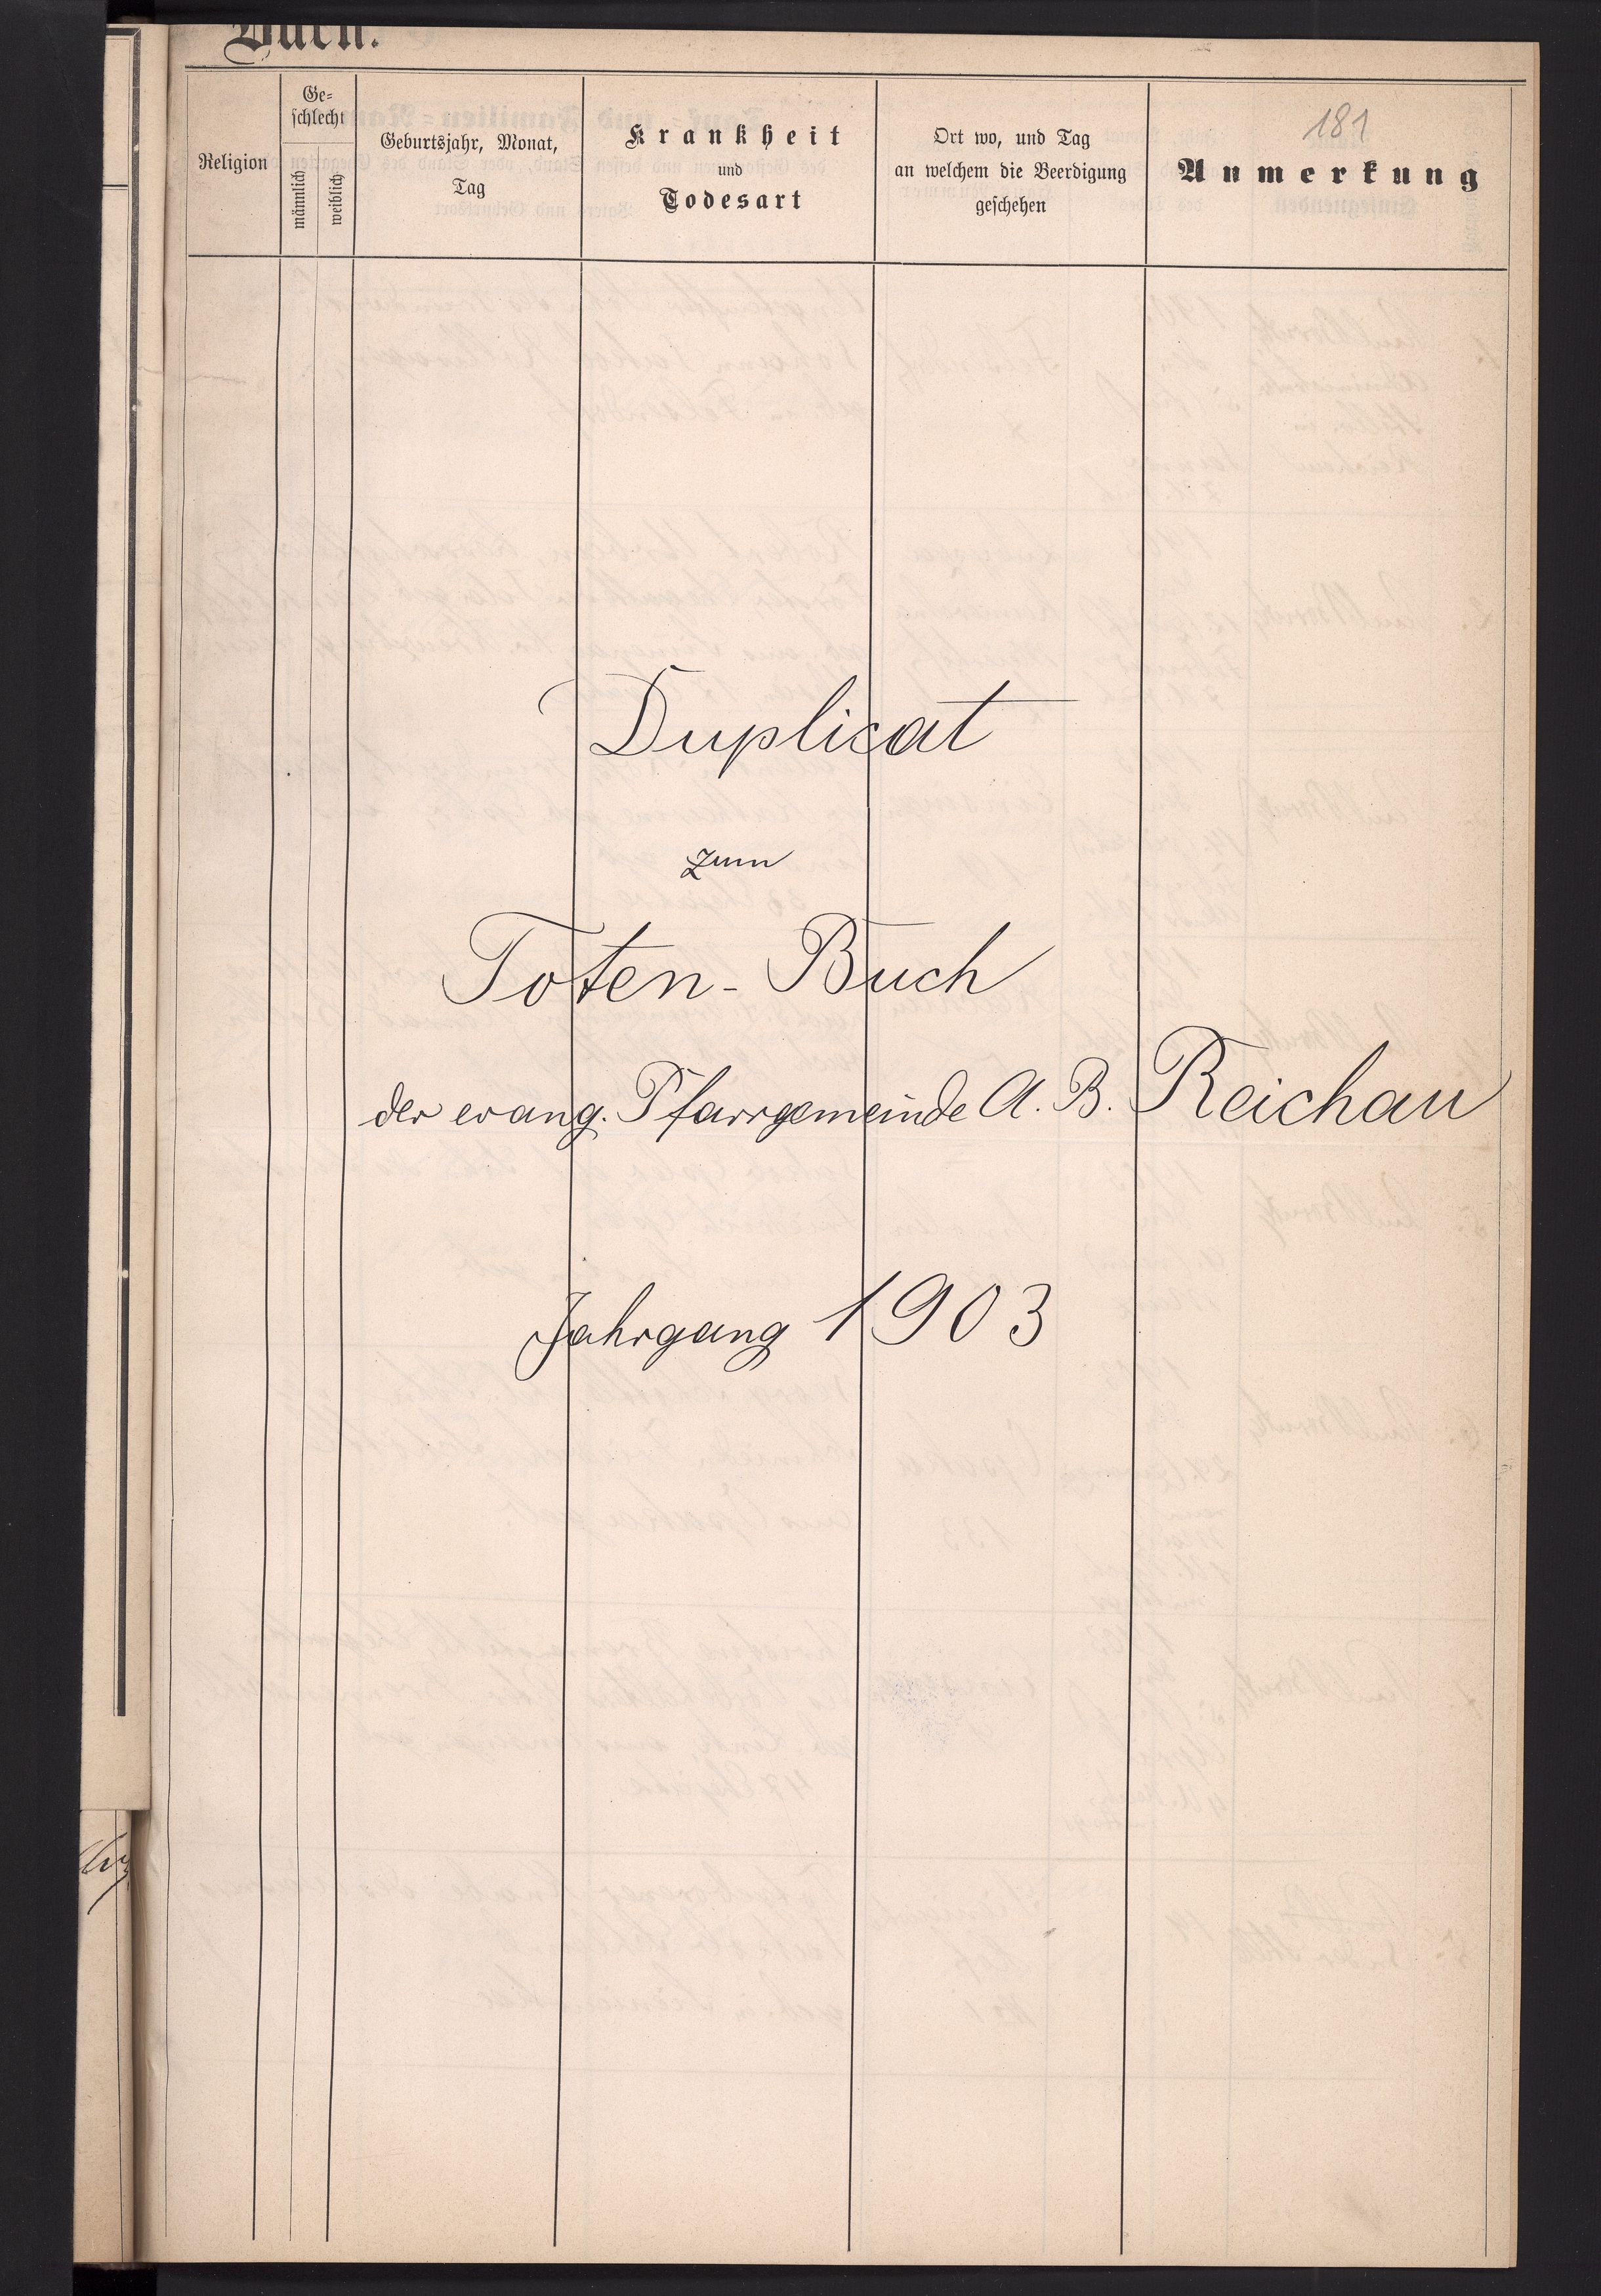 Buch.
181
Religion
Ge-
schlecht
männlich
weiblich
Geburtsjahr, Monat,
Tag
Krankheit
und
Todesart
Ort wo, und Tag
an welchem die Beerdigung
geschehen
Anmerkung
Duplicat
zum
Toten-Buch
der evang. Pfarrgemeinde A. B. Reichau
Jahrgang 1903